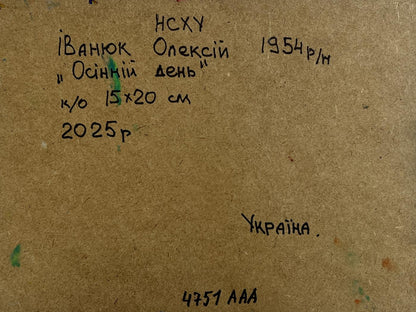 НСХУ
Іванюк Олексій 1954 р/н
„Осінній день"
к/о 15×20 см
2025р
Україна.
4751 ААА